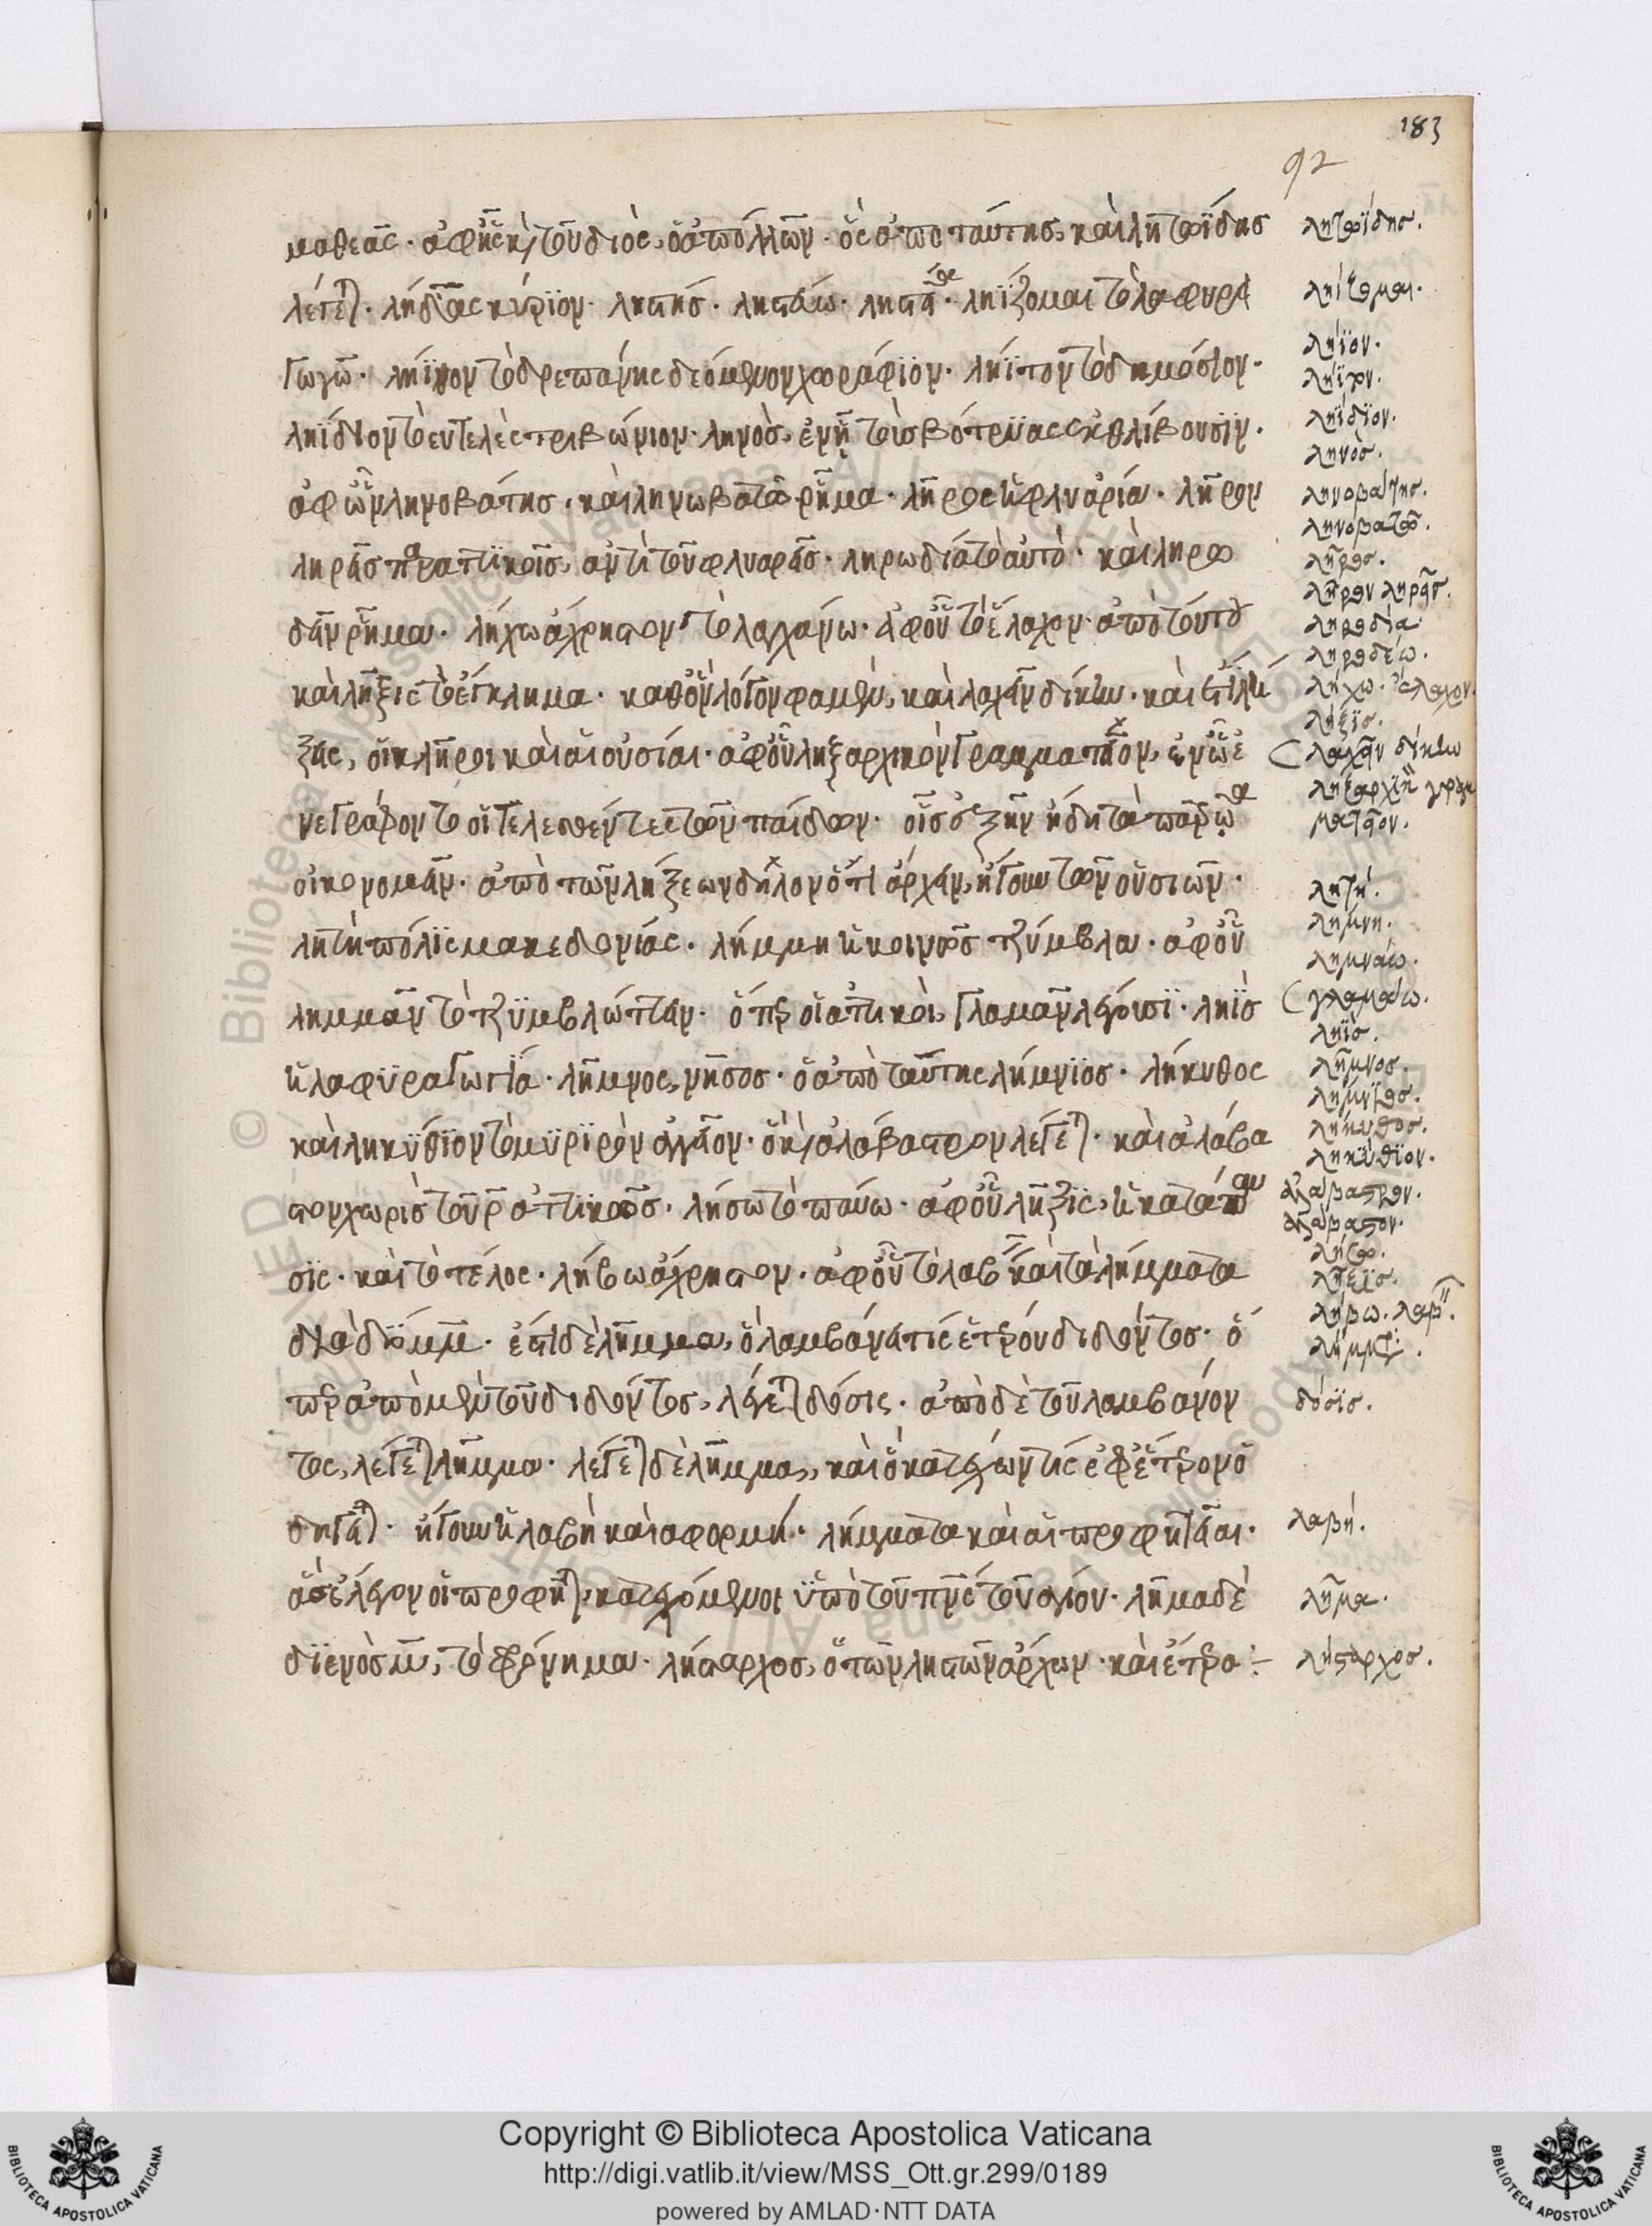 183
92
μα θεᾶς · ἀφ ἧς καὶ τοῦ διὸς, ὁ ἀπόλλων · ὃς ἀπο ταύτης, καὶ λητωΐδης
λέγεται · λήδας κύριον · ληστής · ληστάω · ληΐζομαι τὸ λαφυρα
γωγῶ · λήϊνον τὸ δρεπάνης δεόμενον χωράφιον · λήϊτον τὸ δημόσιον ·
ληΐδιον τὸ εὐτελὲς τριβώνιον · ληνὸς, ἐν ᾗ τοὺς βότρυας ἐκθλίβουσιν ·
ἀφ ὧν ληνοβάτης · καὶ ληνωβατῶ ρῆμα · λῆρος ἡ φλυαρία · λῆρον
ληρᾶς ἀττικοῖς, ἀντὶ τοῦ φλυαρᾶς · ληρωδία τὸ αὐτό · καὶ ληρω
δᾶν ρῆμα · λήχω ἄχρηστον τὸ λαγχάνω · ἀφ οὗ τὸ ἔλαχον · ἀπὸ τούτου
καὶ λῆξις τὸ ἔγκλημα · καθ ὃν λόγον φαμὲν, καὶ λαχᾶν δίκην · καὶ
ξεις, οἱ κλῆροι καὶ αἱ οὐσίαι · ἀφ οὗ ληξαρχικὸν γραμματεῖον, ἐν ᾧ ἐ
νεγράφοντο οἱ τελεσθέντες τῶν παίδων · οἷς ἐξῆν ἤδη τὰ πατρῷα
οἰκονομεῖν · ἀπὸ τῶν λήξεων δηλονότι ἄρχειν, ἤγουν τῶν οὐσιῶν ·
λητὴ πόλις μακεδονίας · λήμμη ἡ κοινῶς τζύμβλα · ἀφ οὗ
λημμᾶν τὸ τζυμβλώττειν · ὅπερ οἱ ἀττικοὶ, γλαμᾶν λέγουσι · ληῒς
ἡ λαφυραγωγία · λῆμνος, νῆσος · ὁ ἀπὸ ταύτης λήμνιος · λήκυθος
καὶ ληκύθιον τὸ μυρηρὸν ἀγγεῖον · ὃ καὶ ἀλάβαστρον λέγεται · καὶ ἀλάβα
στον χωρὶς τοῦ ρ ἀττικῶς · λήσω τὸ παύω · ἀφ οὗ λῆξις, ἡ κατάπαυ
σις · καὶ τὸ τέλος · λήβω ἄχρηστον · ἀφ οὗ τὸ λαβ καὶ τὰ λήμματα
διὰ δύο μμ · ἐστὶ δὲ λῆμμα, ὃ λαμβάνει τὶς ἑτέρου διδόντος · ὅ
περ ἀπὸ μὲν τοῦ διδόντος, λέγεται δόσις · ἀπὸ δὲ τοῦ λαμβάνον
τος, λέγεται λῆμμα · λέγεται δὲ λῆμμα, καὶ ὁ κατέχων τίς ἐφ ἕτερον ὁ
δηγεῖται · ἤγουν ἡ λαβὴ καὶ ἀφορμή · λήμματα καὶ αἱ προφητεῖαι ·
ἃς ἔλεγον οἱ προφῆται κατεχόμενοι ὑπὸ τοῦ πνς τοῦ ἁγίου · λῆμα δὲ
δι ἑνὸς μ, τὸ φρόνημα · λήσταρχος, ὁ τῶν λῃστῶν ἄρχων · καὶ ἕτερα :–
λητωΐδης.
ληΐζομαι.
λήϊον.
λήϊτον.
ληΐδϊον.
ληνὸς.
ληνοβάτης.
ληνοβατῶ.
λῆρος.
λῆρον ληρᾶς.
ληρωδία.
ληρωδέω.
λήχω. ἔλαχον.
λῆξϊς.
λαχᾶν δίκην
ληξαρχικὸν γραμ
ματεῖον.
λητή.
λήμνη.
λημνάω.
γλαμάω.
ληῒς.
λῆμνος.
λήμνϊος.
λήκυθος.
ληκύθϊον.
ἀλάβαστρον.
ἀλάβαστον.
λήσω.
λῆξϊς.
λήβω. λαβ.
λῆμμα.
δόσϊς.
λαβή.
λῆμα.
λήσταρχος.
Copyright © Biblioteca Apostolica Vaticana
http://digi.vatlib.it/view/MSS_Ott.gr.299/0189
powered by AMLAD·NTT DATA
BIBLIOTECA APOSTOLICA VATICANA
BIBLIOTECA APOSTOLICA VATICANA